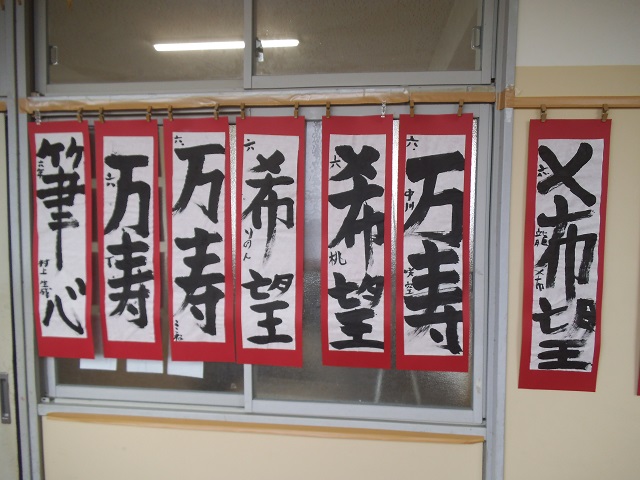 筆心
六年
村上
万寿
六
万寿
六
希望
六
りのん
希望
六
桃
万寿
六
中川
希望
六